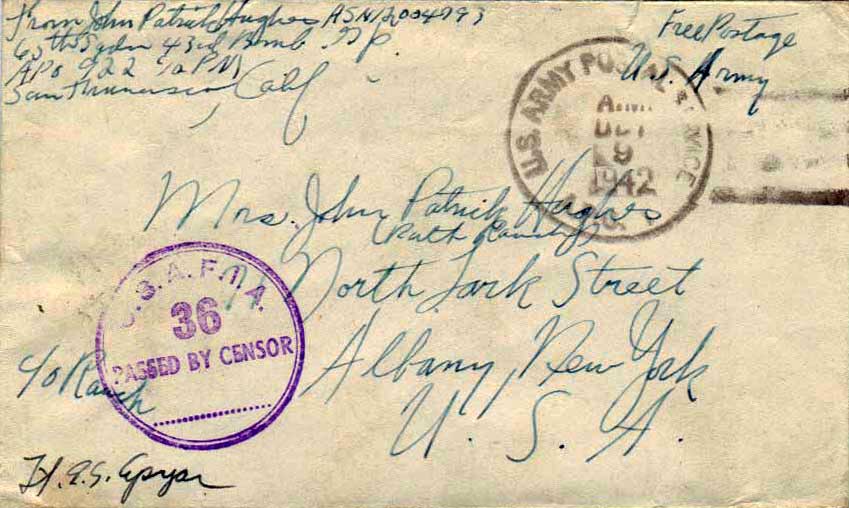 From John Patrick Hughes ASN12004793
65th Sqdn 43rd Bomb. Gp.
APO 922 c/o PM
San Francisco, Calif
Free Postage
U.S. Army
U.S. ARMY POSTAL SERVICE
A.M.
OCT
9
1942
Mrs. John Patrick Hughes
(Ruth Rauch)
North Lark Street
Albany, New York
U. S. A.
U.S.A.F.I.A.
36
PASSED BY CENSOR
c/o Rauch
H. E. S.